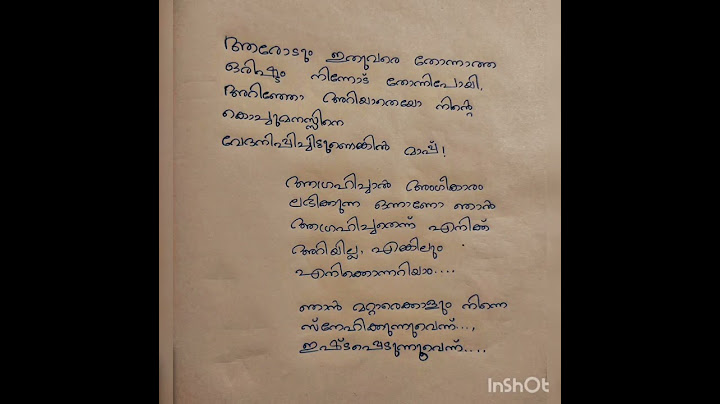 ആരോടും ഇതുവരെ തോന്നാത്ത
ഒരിഷ്ടം നിന്നോട് തോന്നിപോയി.
അറിഞ്ഞോ അറിയാതെയോ നിന്റെ
കൊച്ചുമനസ്സിനെ
വേദനിപ്പിച്ചിട്ടുണെങ്കിൽ മാപ്പ്!
ആഗ്രഹിച്ചാൽ അംഗീകാരം
ലഭിക്കുന്ന ഒന്നാണോ ഞാൻ
ആഗ്രഹിച്ചതെന്ന് എനിക്ക്
അറിയില്ല, എങ്കിലും
എനിക്കൊന്നറിയാം....
ഞാൻ മറ്റാരെക്കാളും നിന്നെ
സ്നേഹിക്കുന്നുവെന്ന്...,
ഇഷ്ടപ്പെടുന്നുവെന്ന്....
InShOt